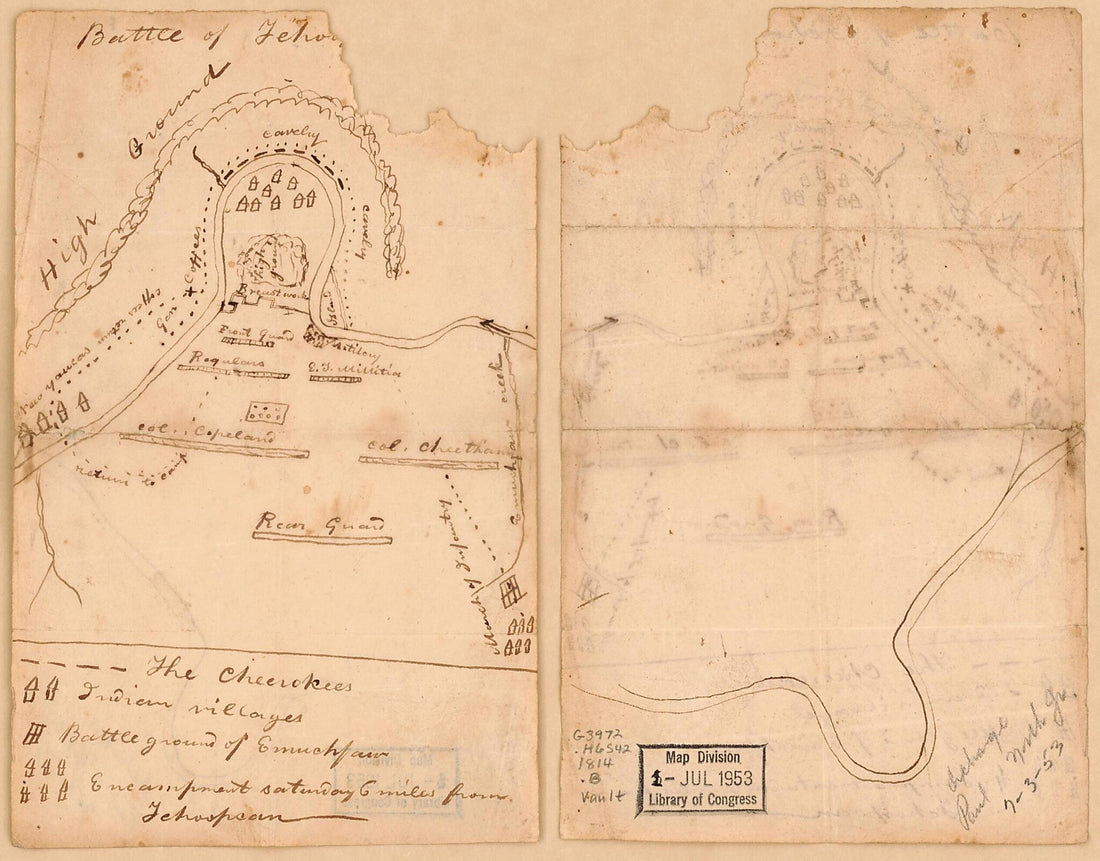 Battle of Tehoo
High Ground
Cavelry
cavelry
Gen Coffees
high ground
Breastwork
Island
Front Guard
Artilery
Regulars
E. T. Millitia
creek
col. Copeland
col. Cheetham
return to camp
Rear Guard
March of Infantry
The Cheerokees
Indian villages
Battle ground of Emuchfaw
Encampment saturday 6 miles from
Tehoopcan
G3972
.H6S42
1814
.B
Vault
Map Division
1 - JUL 1953
Library of Congress
Exchange
7-3-53